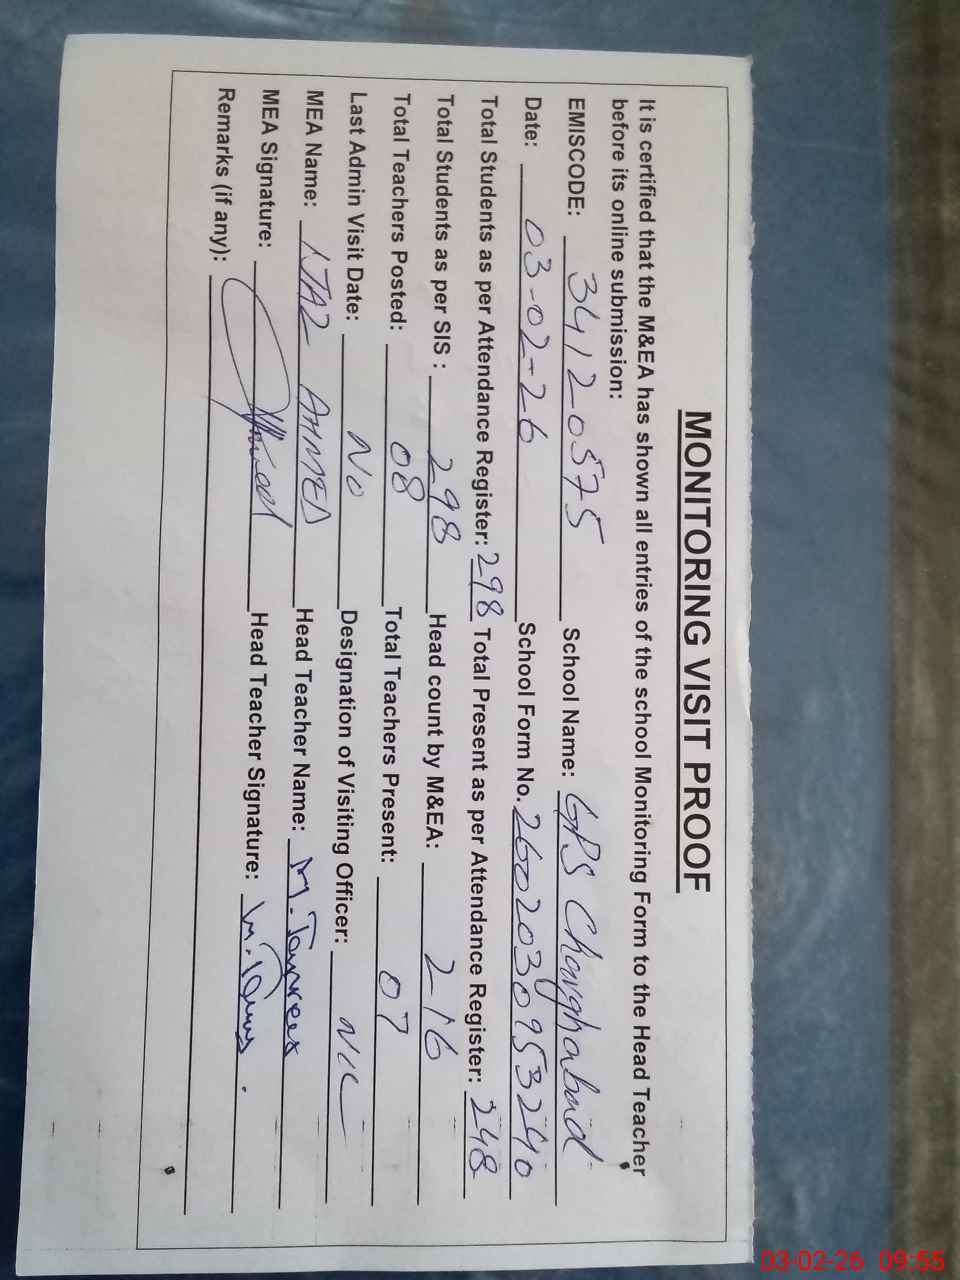 MONITORING VISIT PROOF
It is certified that the M&EA has shown all entries of the school Monitoring Form to the Head Teacher
before its online submission:
EMISCODE: 34120575 School Name: GPS Changhabad
Date: 03-02-26 School Form No. 26020309953240
Total Students as per Attendance Register: 298 Total Present as per Attendance Register: 248
Total Students as per SIS : 298 Head count by M&EA: 216
Total Teachers Posted: 08 Total Teachers Present: 07
Last Admin Visit Date: No Designation of Visiting Officer: NIL
MEA Name: IJAZ AHMED Head Teacher Name: M. Tanveer
MEA Signature: Head Teacher Signature:
Remarks (if any):
03-02-26 09:55